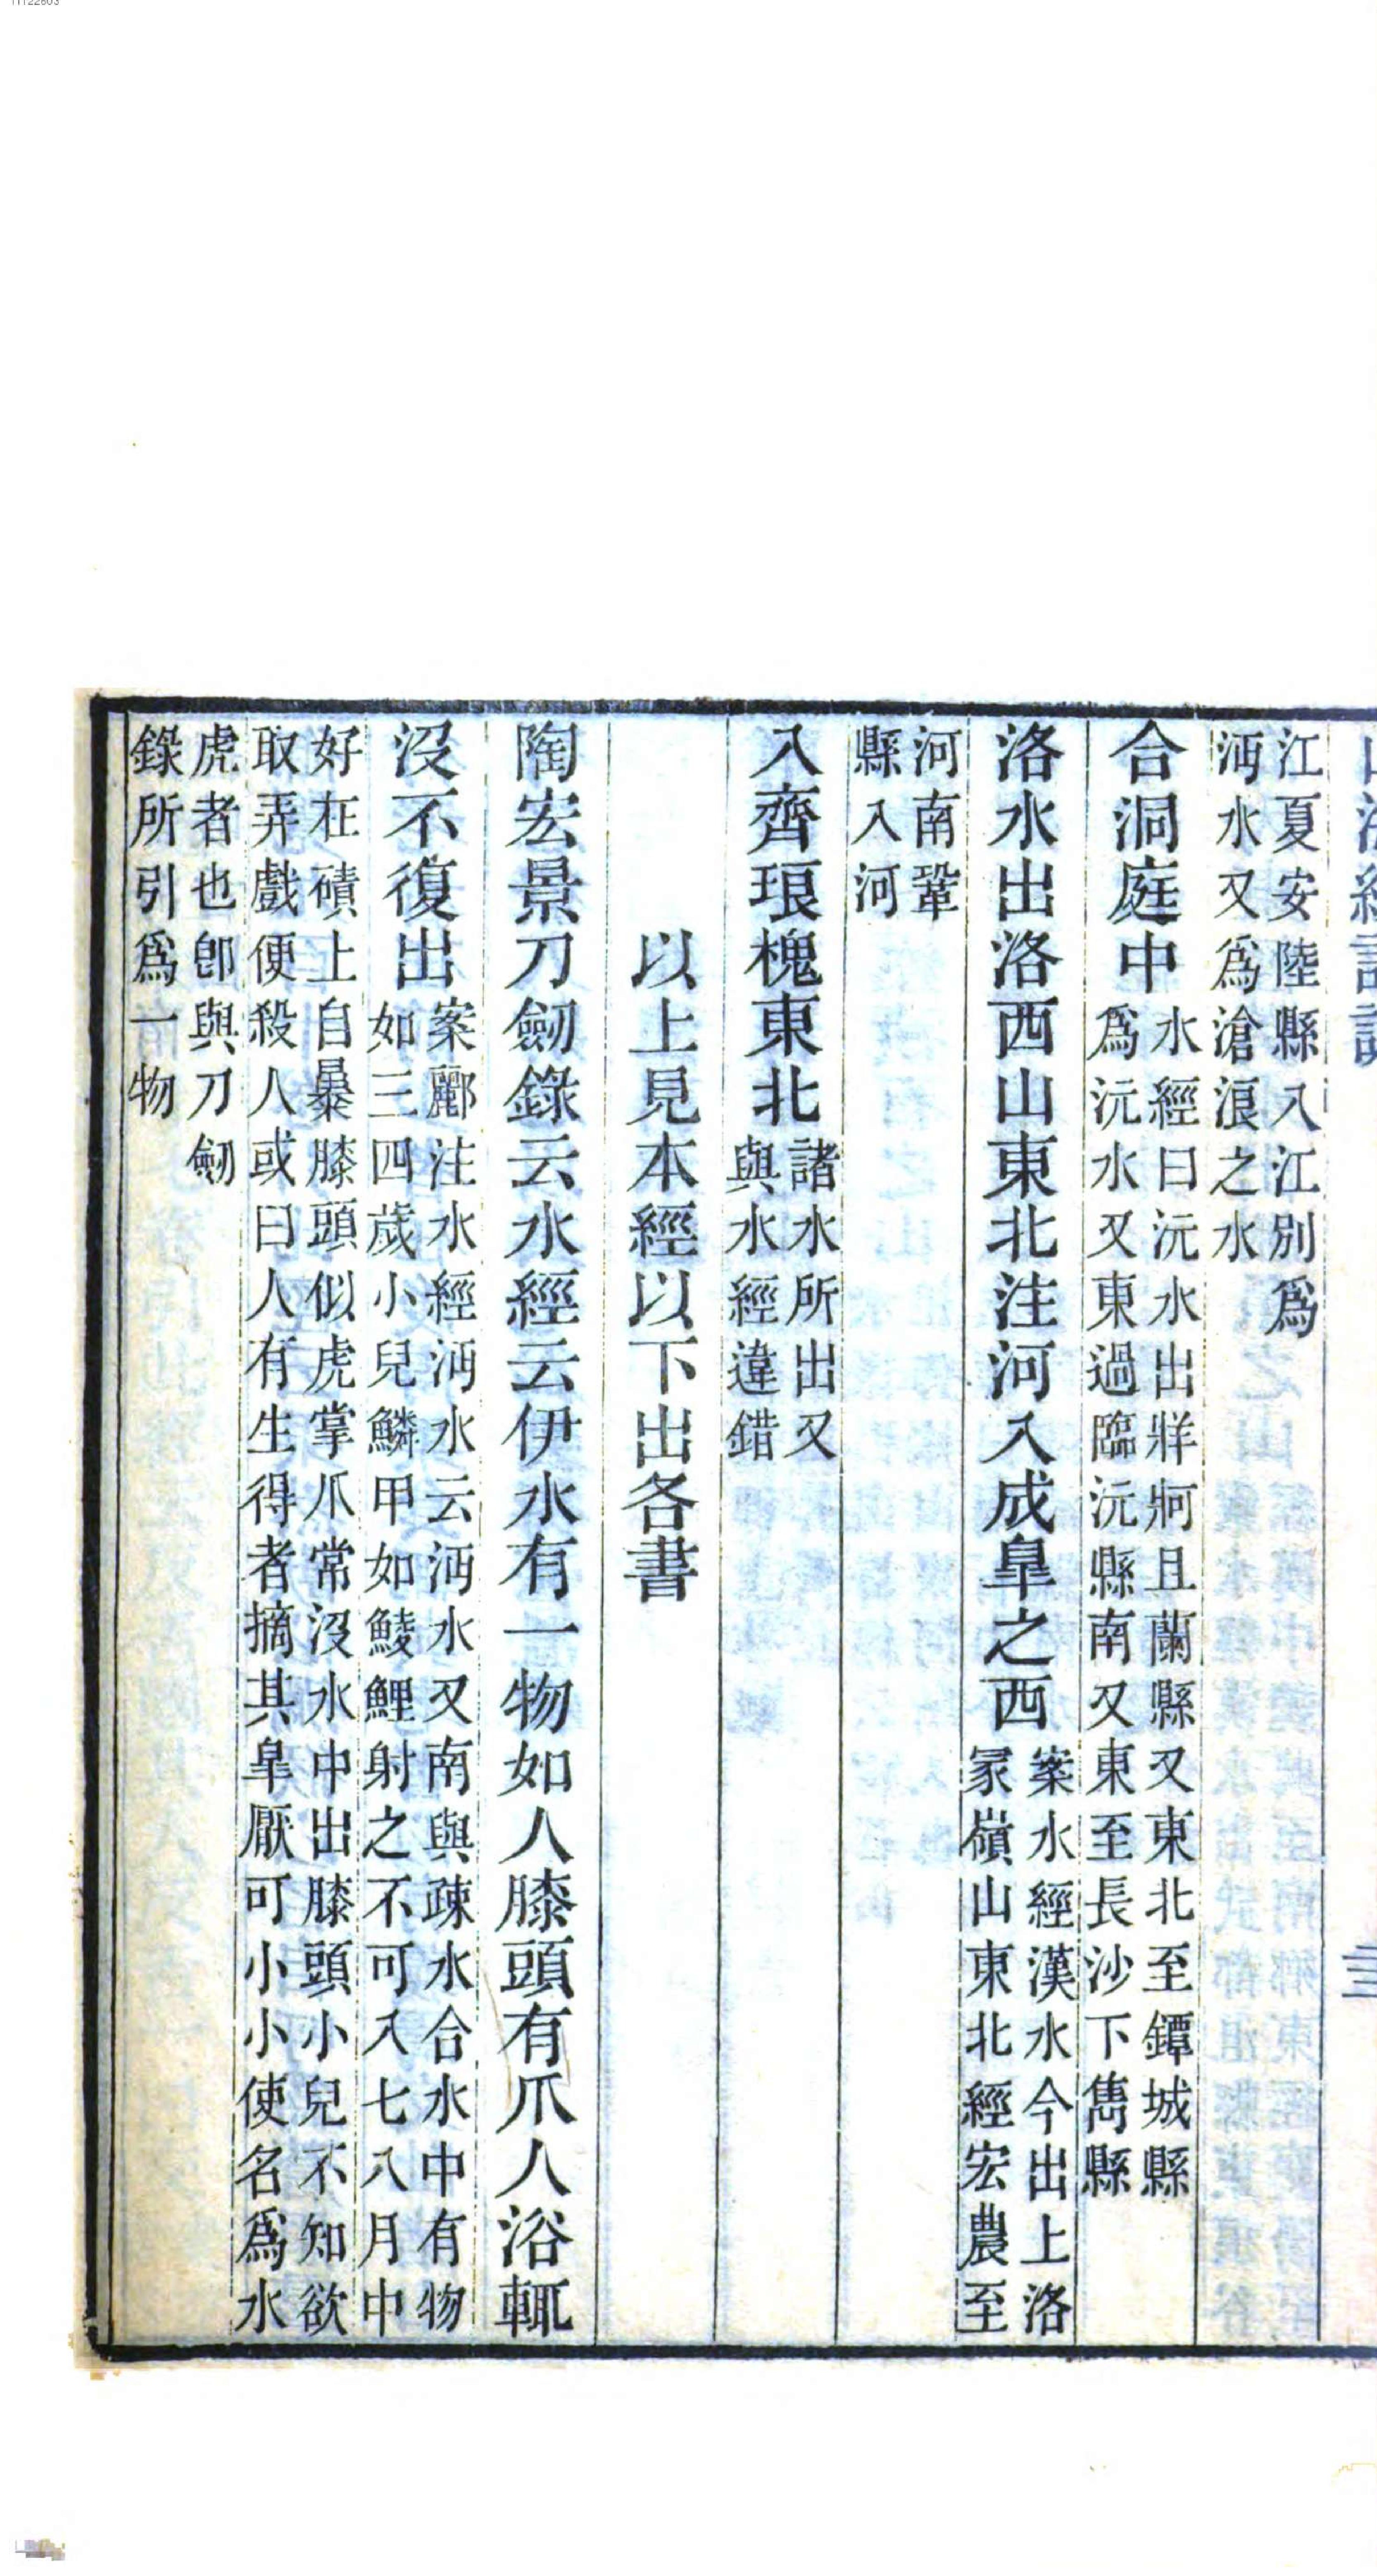 江夏安陸縣入江別爲
沔水又爲滄浪之水
合洞庭中
水經曰沅水出牂牁且蘭縣又東北至鐔城縣
爲沅水又東過臨沅縣南又東至長沙下雋縣
洛水出洛西山東北注河入成臯之西
案水經漢水今出上洛
冢嶺山東北經宏農至
河南鞏
縣入河
入齊琅槐東北
諸水所出又
與水經違錯
以上見本經以下出各書
陶宏景刀劒錄云水經云伊水有一物如人膝頭有爪人浴輒
沒不復出
案酈注水經沔水云沔水又南與疎水合水中有物
如三四歲小兒鱗甲如鯪鯉射之不可入七八月中
好在磧上自㬥膝頭似虎掌爪常沒水中出膝頭小兒不知欲
取弄戲便殺人或曰人有生得者摘其臯厭可小小使名爲水
虎者也卽與刀劒
錄所引爲一物